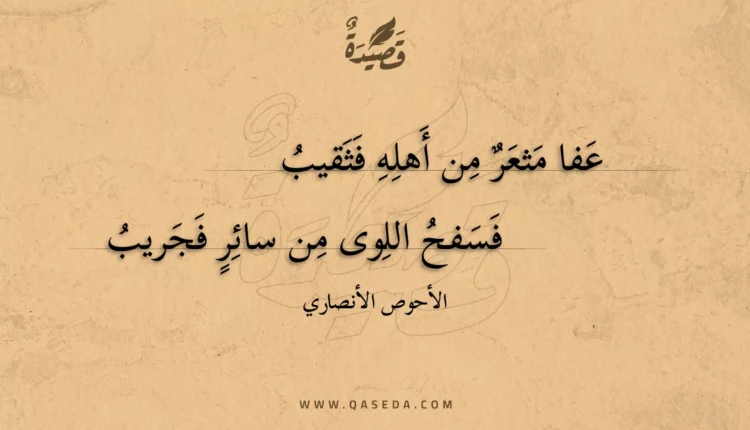 قَصِيْدَةٌ
عَفا مَثعَرٌ مِن أَهلِهِ فَثَقيبُ
فَسَفحُ اللِوى مِن سائِرٍ فَجَريبُ
الأحوص الأنصاري
WWW.QASEDA.COM